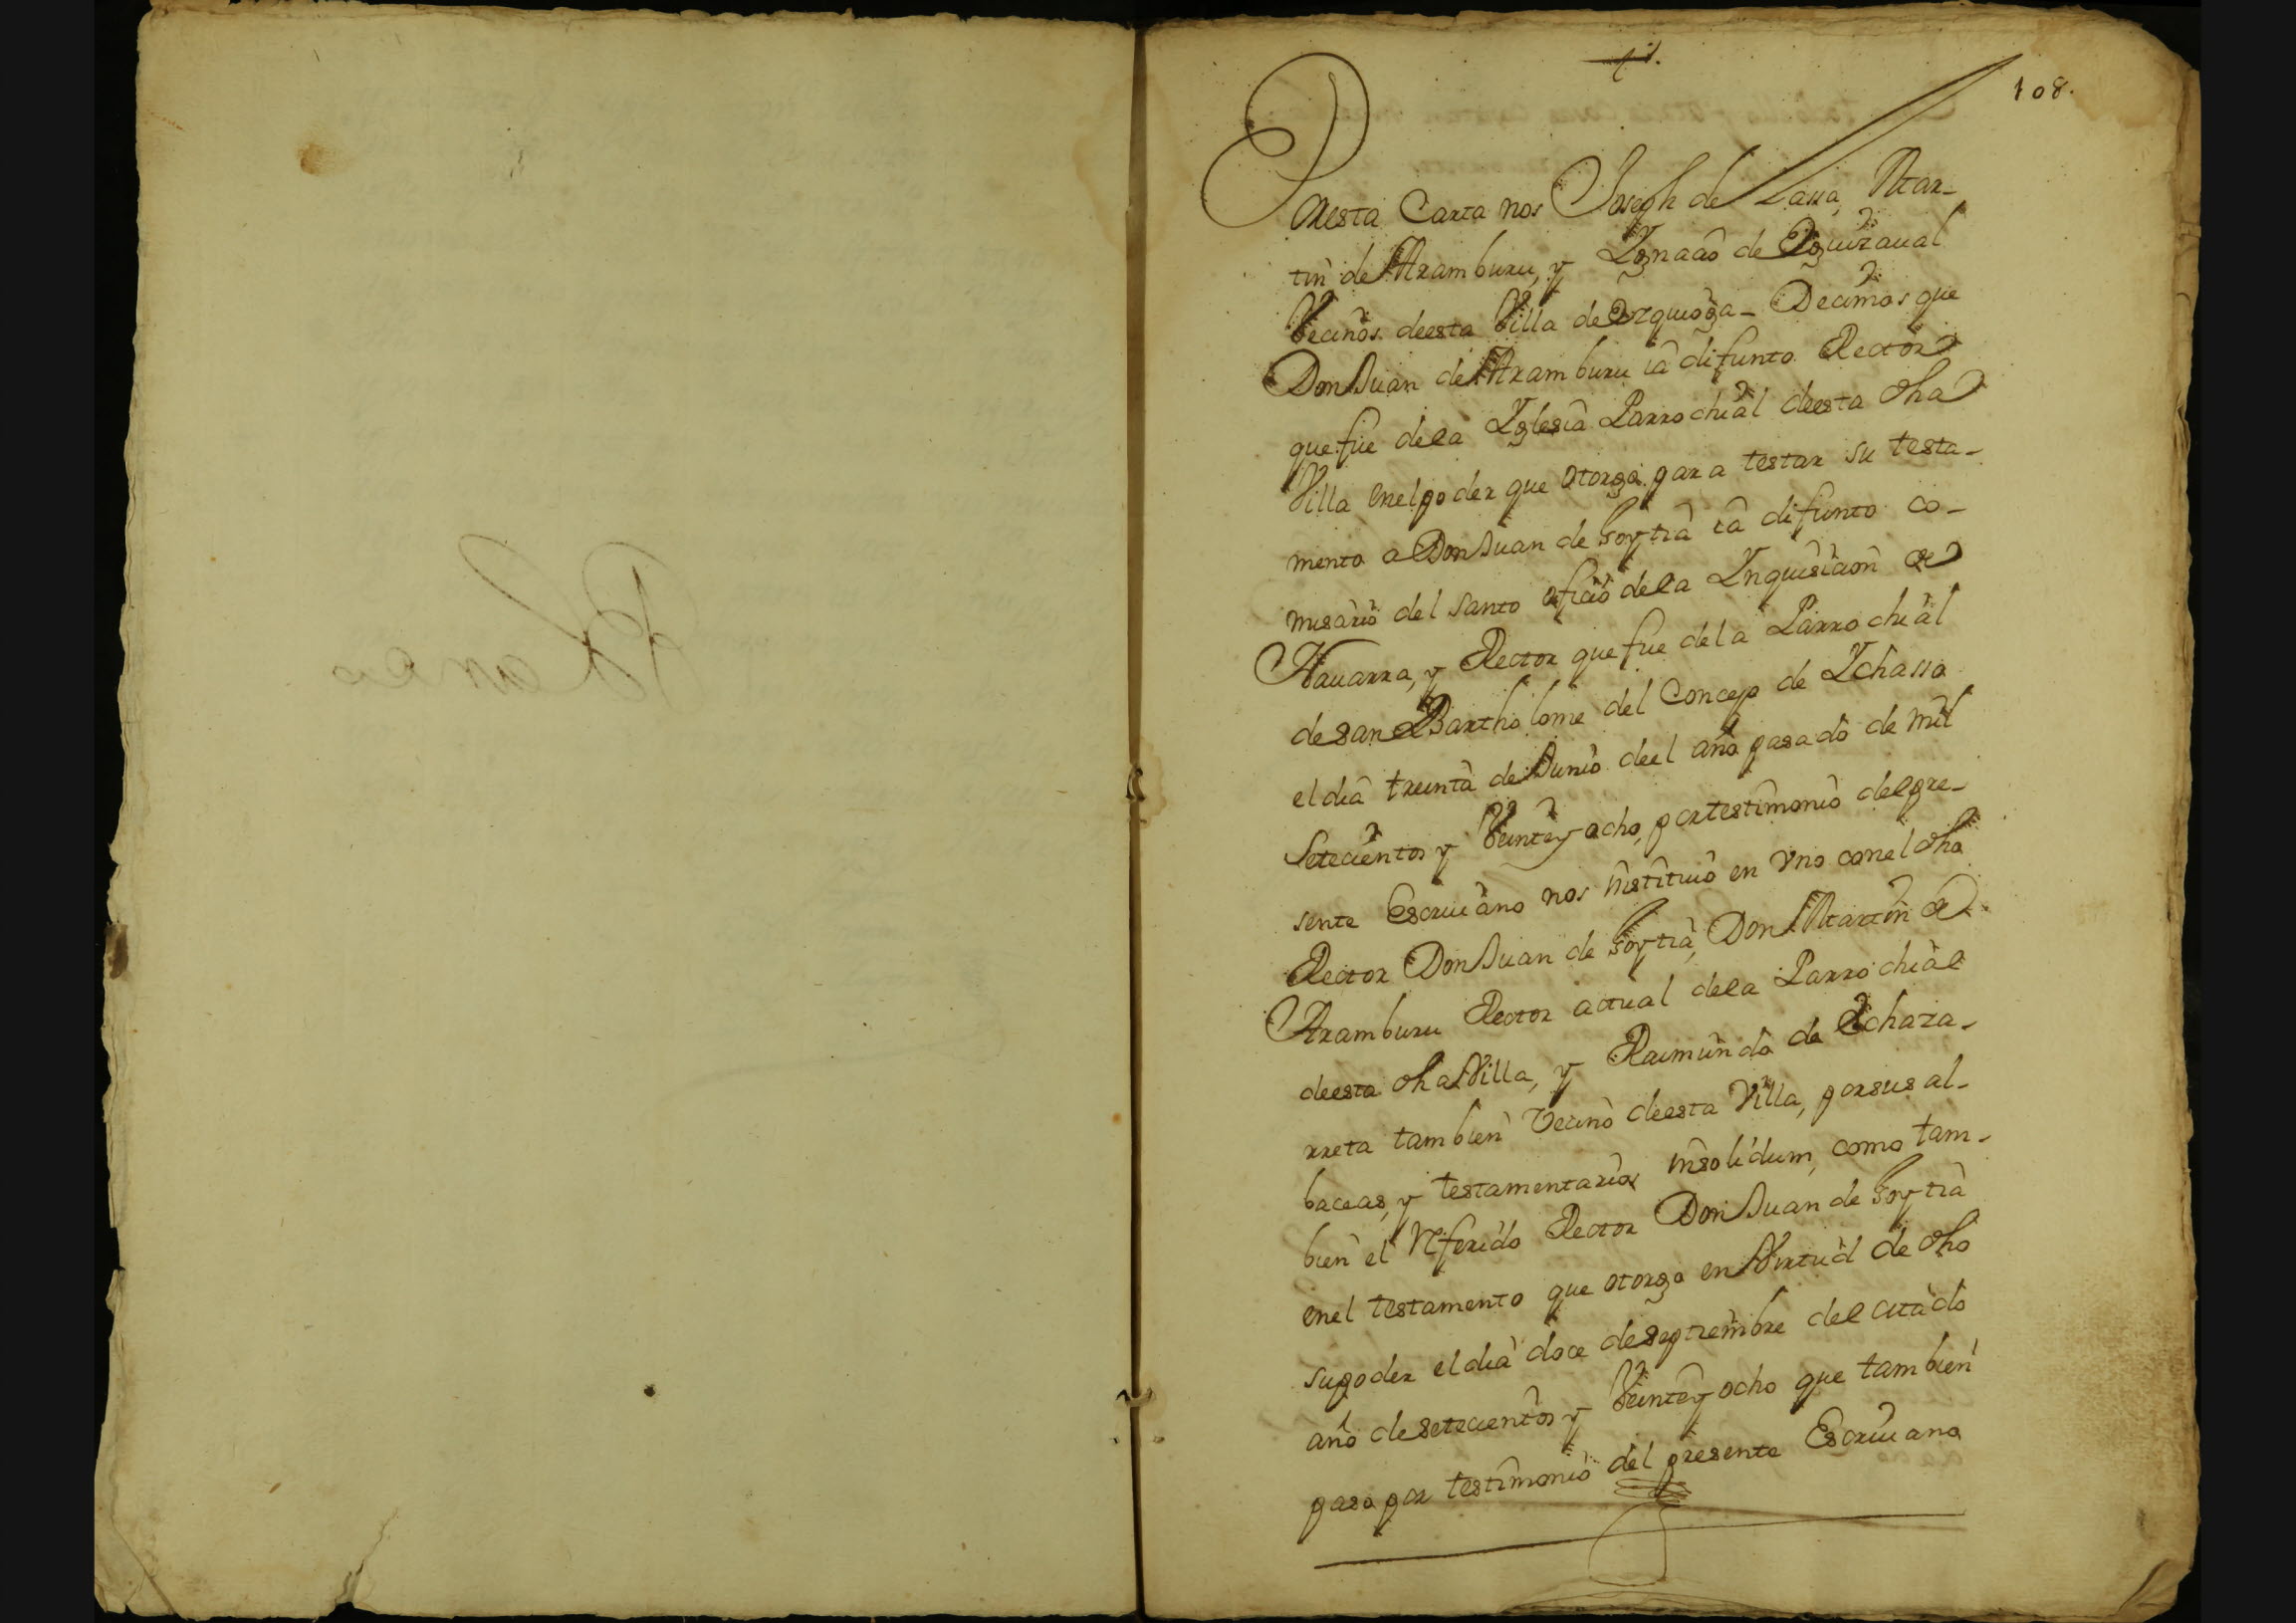 108.
Por esta Carta nos Joseph de Lassa, Mar-
tin de Aramburu, y Ygnacio de Eguizaual
Vecinos de esta Villa de Ezquioga - Decimos que
Don Juan de Aramburu ia difunto Rector
que fue de la Yglesia Parrochial de esta dha
Villa en el poder que otorgo para testar su testa-
mento a Don Juan de Goytia ia difunto co-
misario del santo oficio de la Ynquisicion de
Nauarra, y Rector que fue de la Parrochial
de san Bartholome del Concejo de Ychasso
el dia treinta de Junio de el año pasado de mil
setecientos y Veinte y ocho, por testimonio del pre-
sente Escriuano nos instituio en vno con el dho
Rector Don Juan de Goytia, Don Martin de
Aramburu Rector actual de la Parrochial
de esta dha Villa, y Raimundo de Echaza-
rreta tambien Vecino de esta Villa, por sus al-
baceas, y testamentarios insolidum, como tam-
bien el referido Rector Don Juan de Goytia
en el testamento que otorgo en Virtud de dho
su poder el dia doce de septiembre del citado
año de setecientos y Veinte y ocho que tambien
paso por testimonio del presente Escriuano